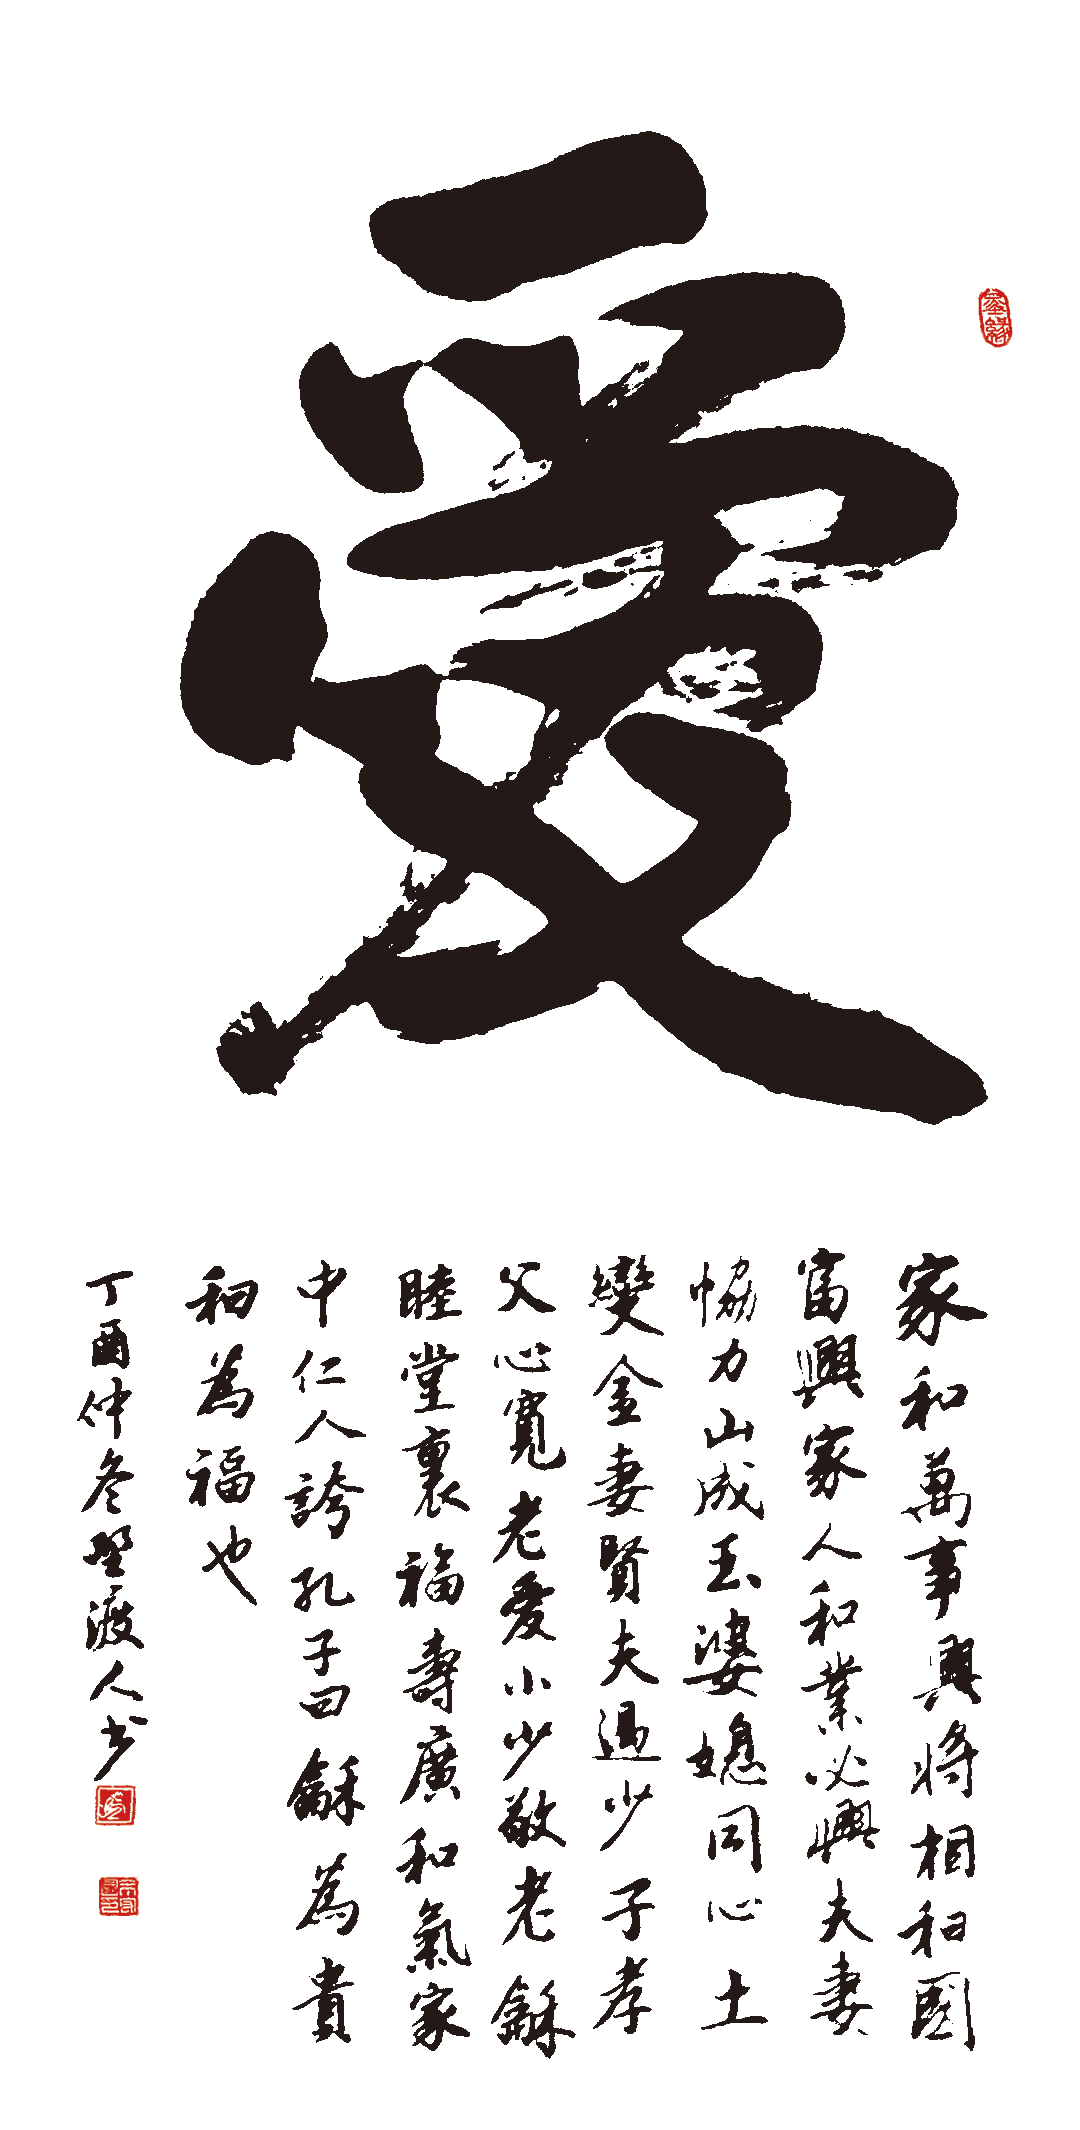 愛
家和萬事興將相和國
富興家人和業必興夫妻
協力山成玉婆媳同心土
變金妻賢夫過少子孝
父心寬老愛小少敬老龢
睦堂裏福壽廣和氣家
中仁人誇孔子曰龢為貴
和為福也
丁酉仲冬野渡人书